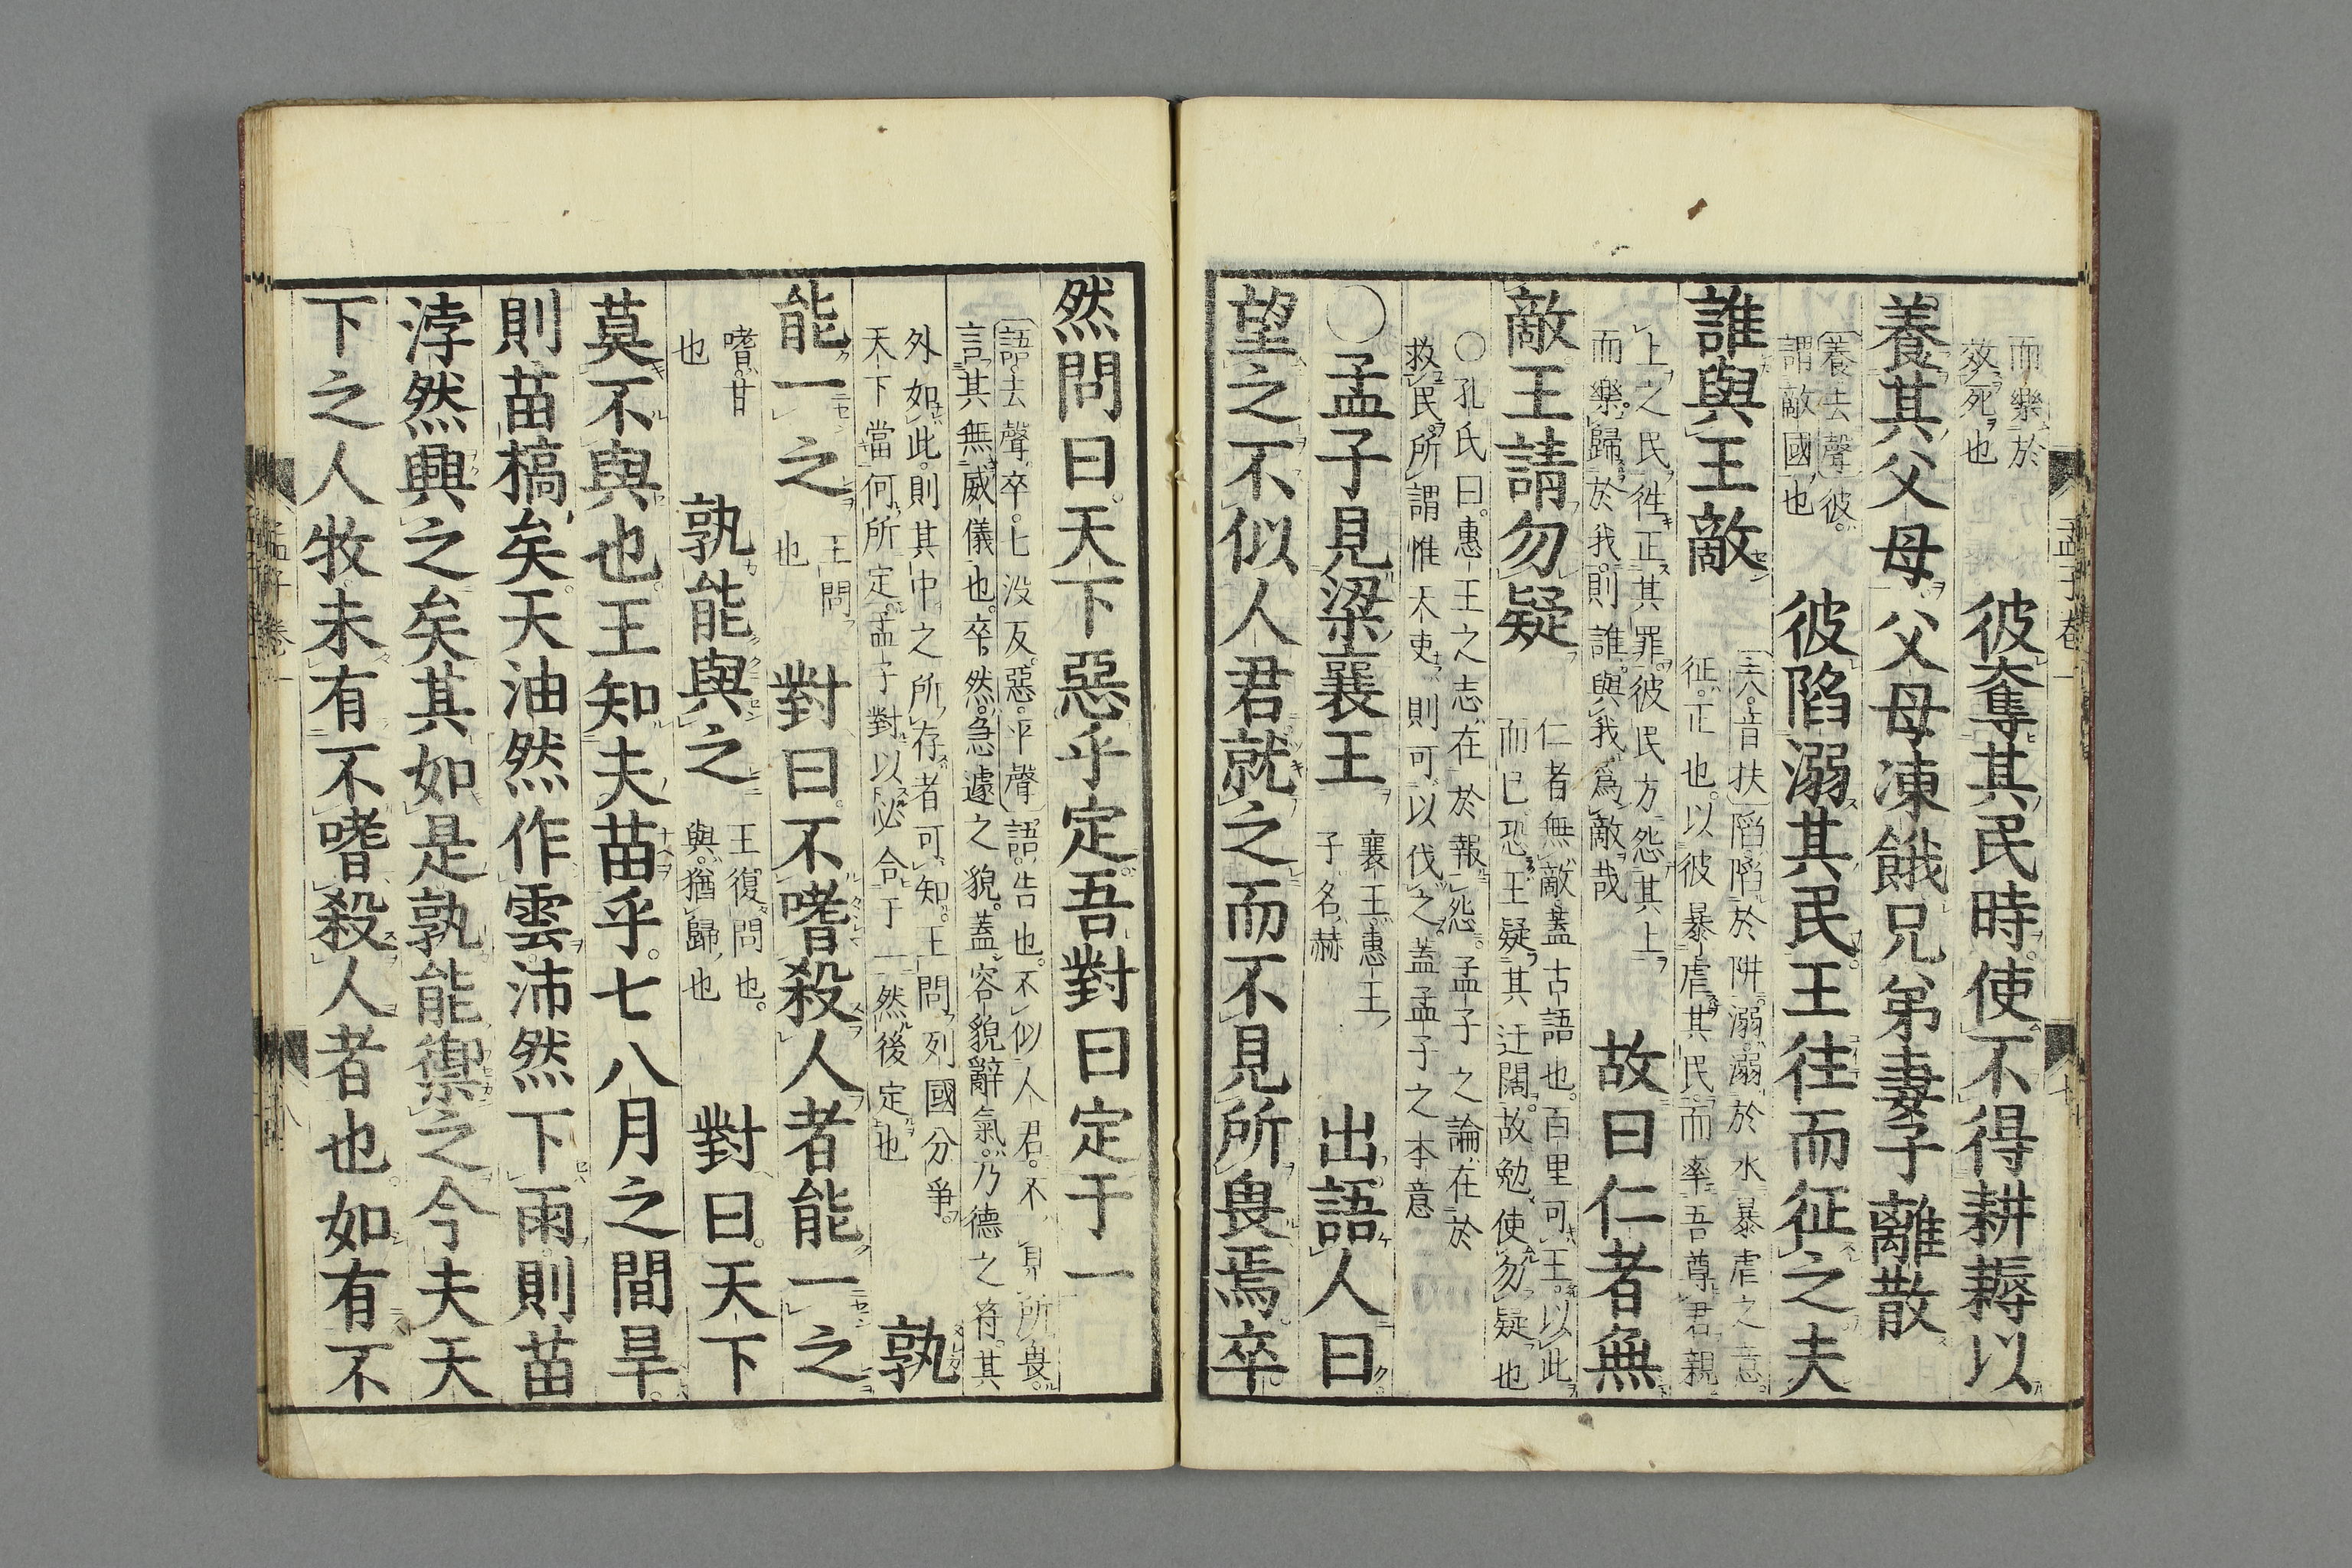 而樂於
效死也
彼奪其民時使不得耕耨以
養其父母父母凍餓兄弟妻子離散
養去聲彼
謂敵國也
彼陷溺其民王往而征之夫
誰與王敵
夫音扶陷陷於阱溺溺於水暴虐之意
征正也以彼暴虐其民而率吾尊君親
上之民徃正其罪彼民方怨其上
而樂歸於我則誰與我爲敵哉
故曰仁者無
敵王請勿疑
仁者無敵蓋古語也百里可王以此
而已恐王疑其迂闊故勉使勿疑也
○孔氏曰惠王之志在於報怨孟子之論在於
救民所謂惟天吏則可以伐之蓋孟子之本意
○孟子見梁襄王
襄王惠王
子名赫
出語人曰
望之不似人君就之而不見所畏焉卒
然問曰天下惡乎定吾對曰定于一
語去聲卒七沒反惡平聲語告也不似人君不見所畏
言其無威儀也卒然急遽之貌蓋容貌辭氣乃德之符其
外如此則其中之所存者可知王問列國分爭
天下當何所定孟子對以必合于一然後定也
孰
能一之
王問
也
對曰不嗜殺人者能一之
嗜甘
也
孰能與之
王復問也
與猶歸也
對曰天下
莫不與也王知夫苗乎七八月之間旱
則苗槁矣天油然作雲沛然下雨則苗
浡然興之矣其如是孰能禦之今夫天
下之人牧未有不嗜殺人者也如有不
孟子卷一
孟子卷一